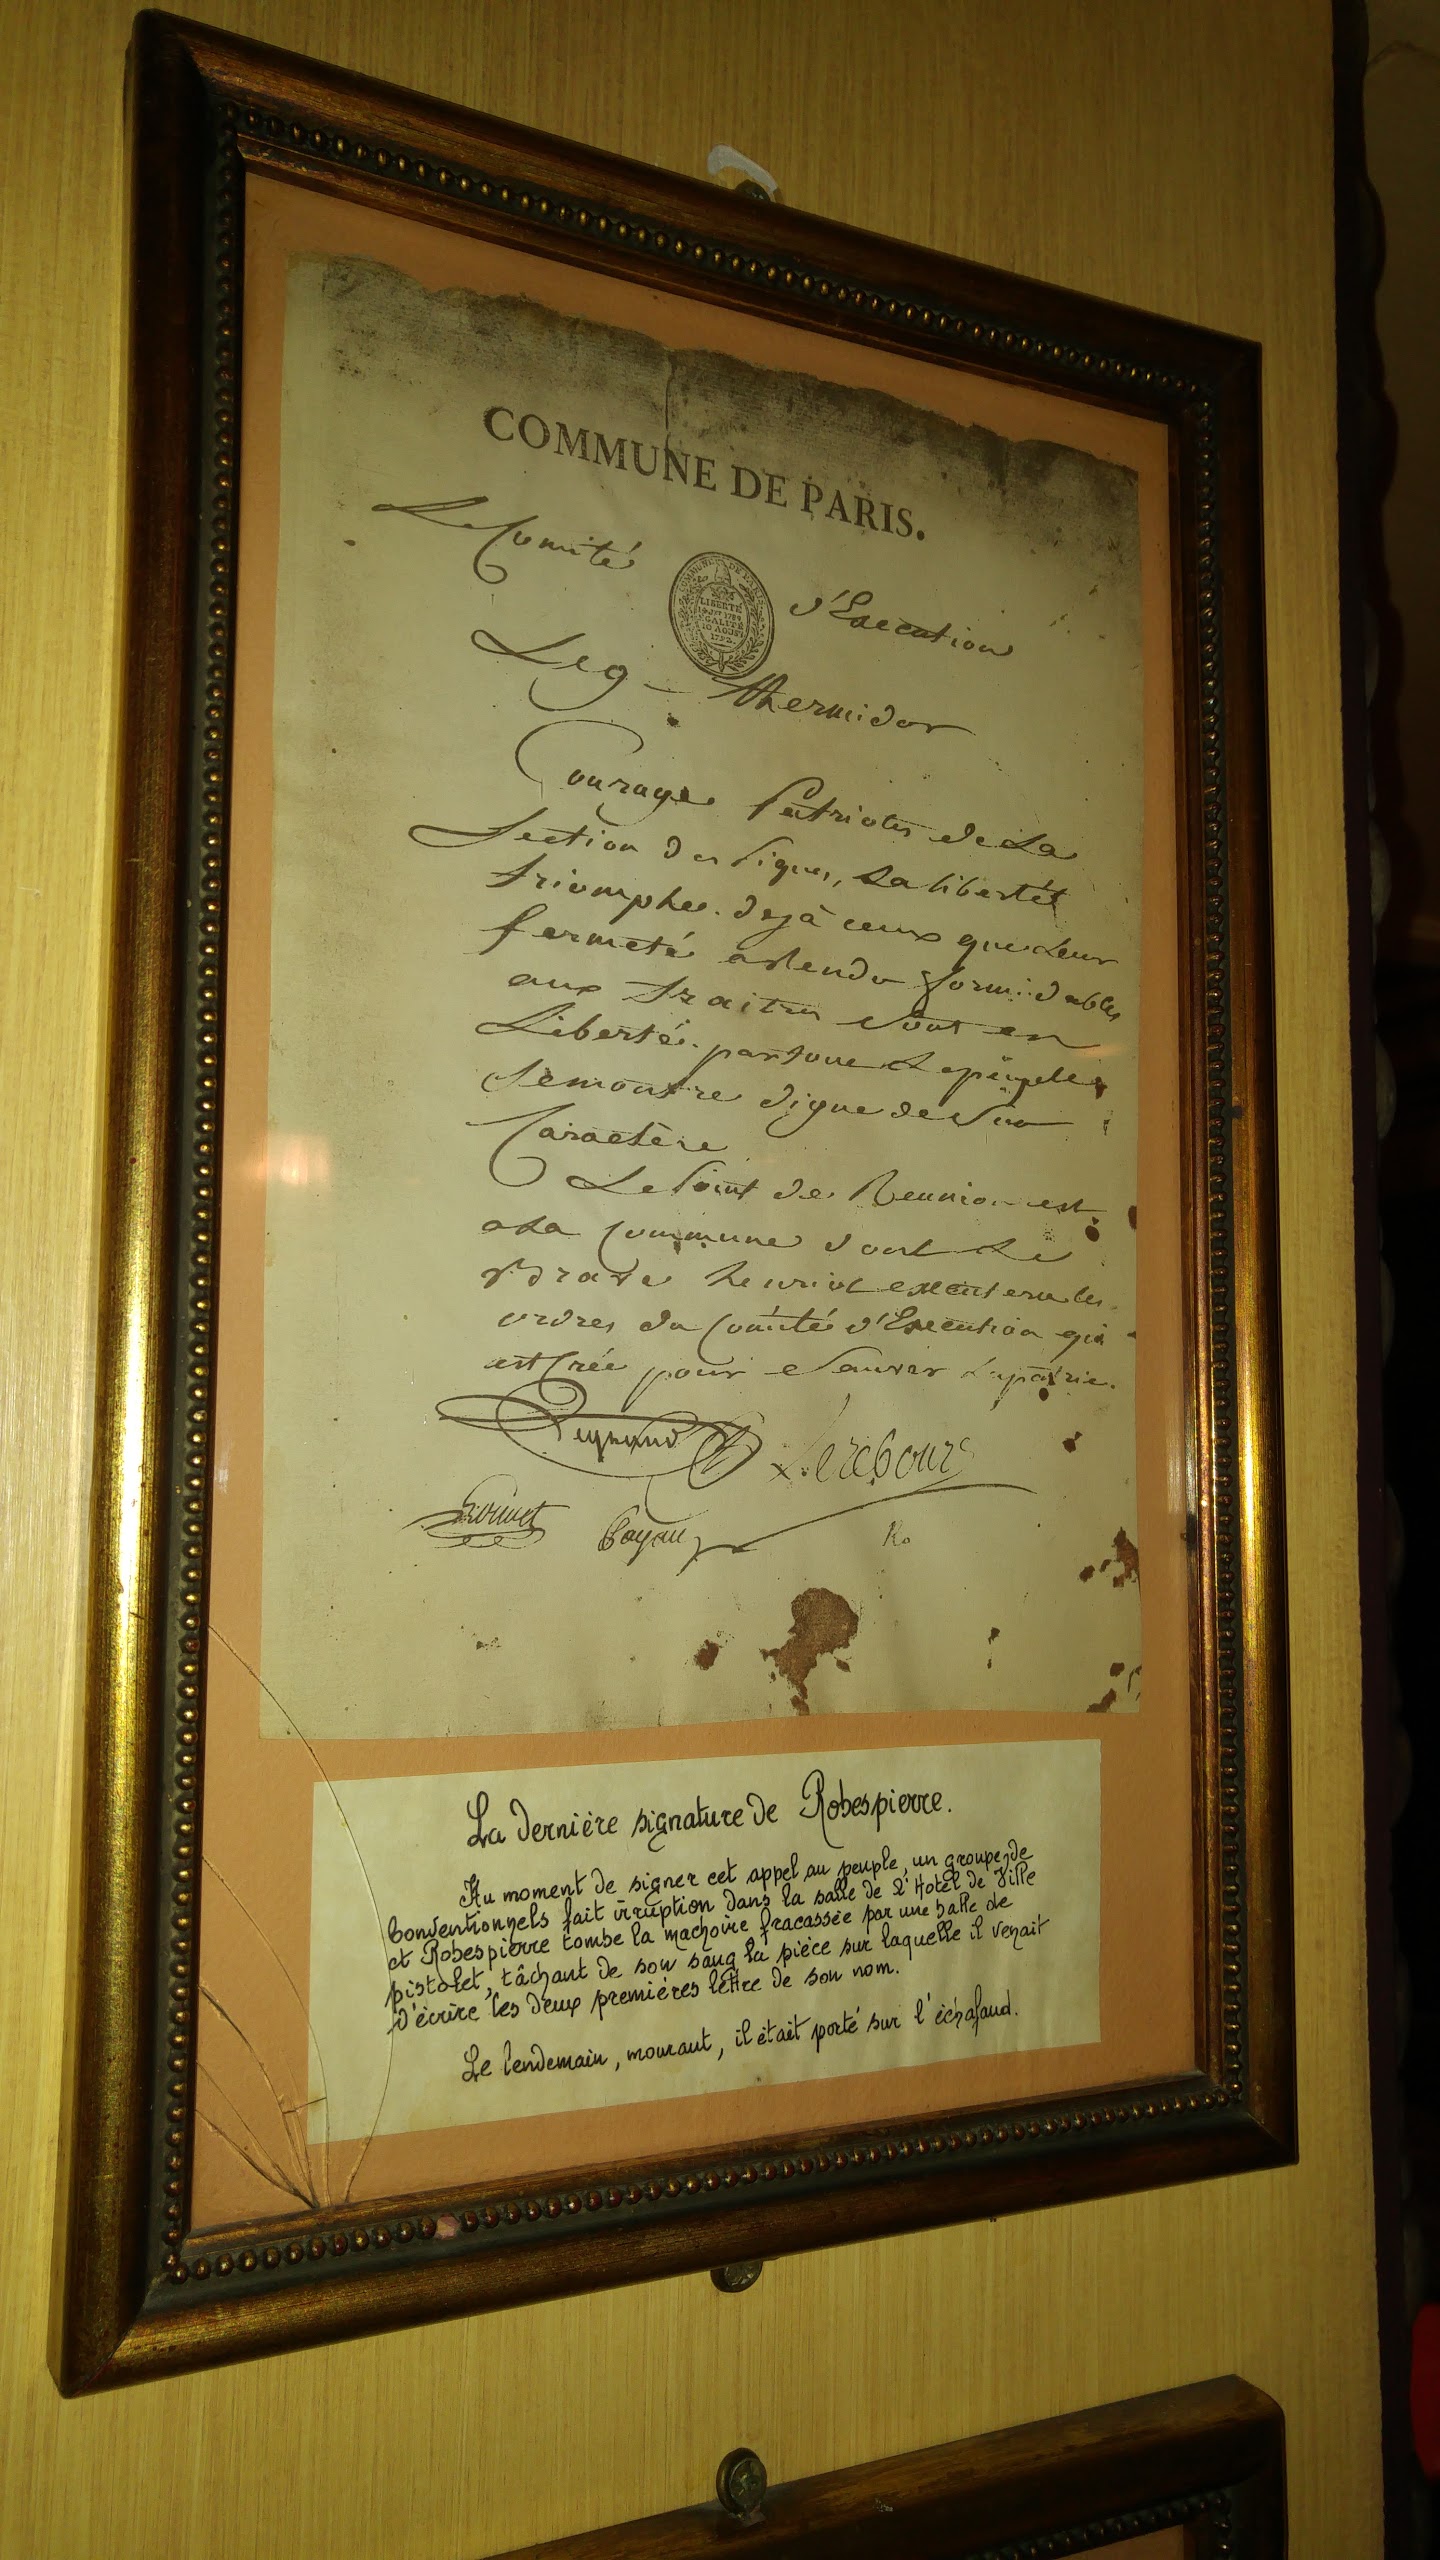 COMMUNE DE PARIS.
Le Comité d'Execution
COMMUNE DE PARIS
LIBERTÉ
14 JET 1789
EGALITÉ
10 AOUST
1792.
Le 9 thermidor
Courage Patriotes de La
Section des Piques, La liberté
triomphe. deja ceux que Leur
fermeté a rendu formidables
aux traitres sont en
Liberté. partout Le peuple
se montre digne de Son
Caractère
Le Point de Reunion est
a La Commune dont Le
brave henriot executera les
ordres du Comité d'Execution qui
est Crée pour Sauver La patrie.
Legrand Lerebours
Louvet Payan Ro
La dernière signature de Robespierre.
Au moment de signer cet appel au peuple, un groupe de
Conventionnels fait irruption dans la salle de l'Hotel de Ville
et Robespierre tombe la machoire fracassée par une balle de
pistolet, tâchant de son sang la pièce sur laquelle il venait
d'écrire les deux premières lettre de son nom.
Le lendemain, mourant, il était porté sur l'échafaud.